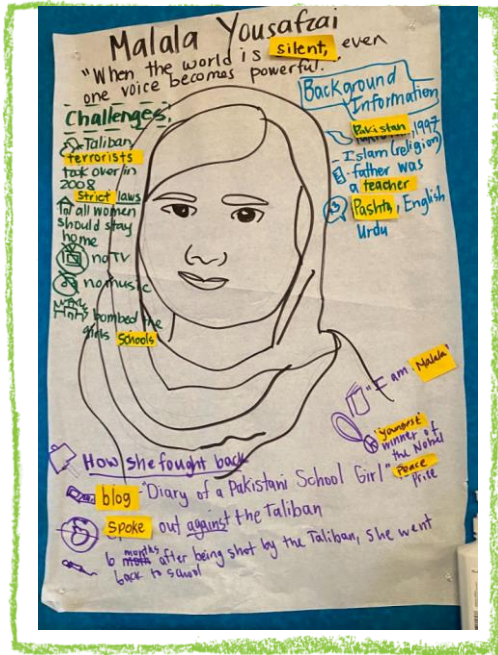 Malala Yousafzai
"When the world is silent, even
one voice becomes powerful."
Challenges:
Taliban
terrorists
took over in
2008
strict laws
all women
should stay
home
no TV
no music
bombed the
girls Schools
Background
Information
Pakistan, 1997
- Islam (religion)
- father was
a teacher
Pashto, English
Urdu
"I am Malala"
"youngest"
winner of
the Nobel
Peace
Prize
How she fought back
blog "Diary of a Pakistani School Girl"
Spoke out against the Taliban
6 months after being shot by the Taliban, she went
back to school